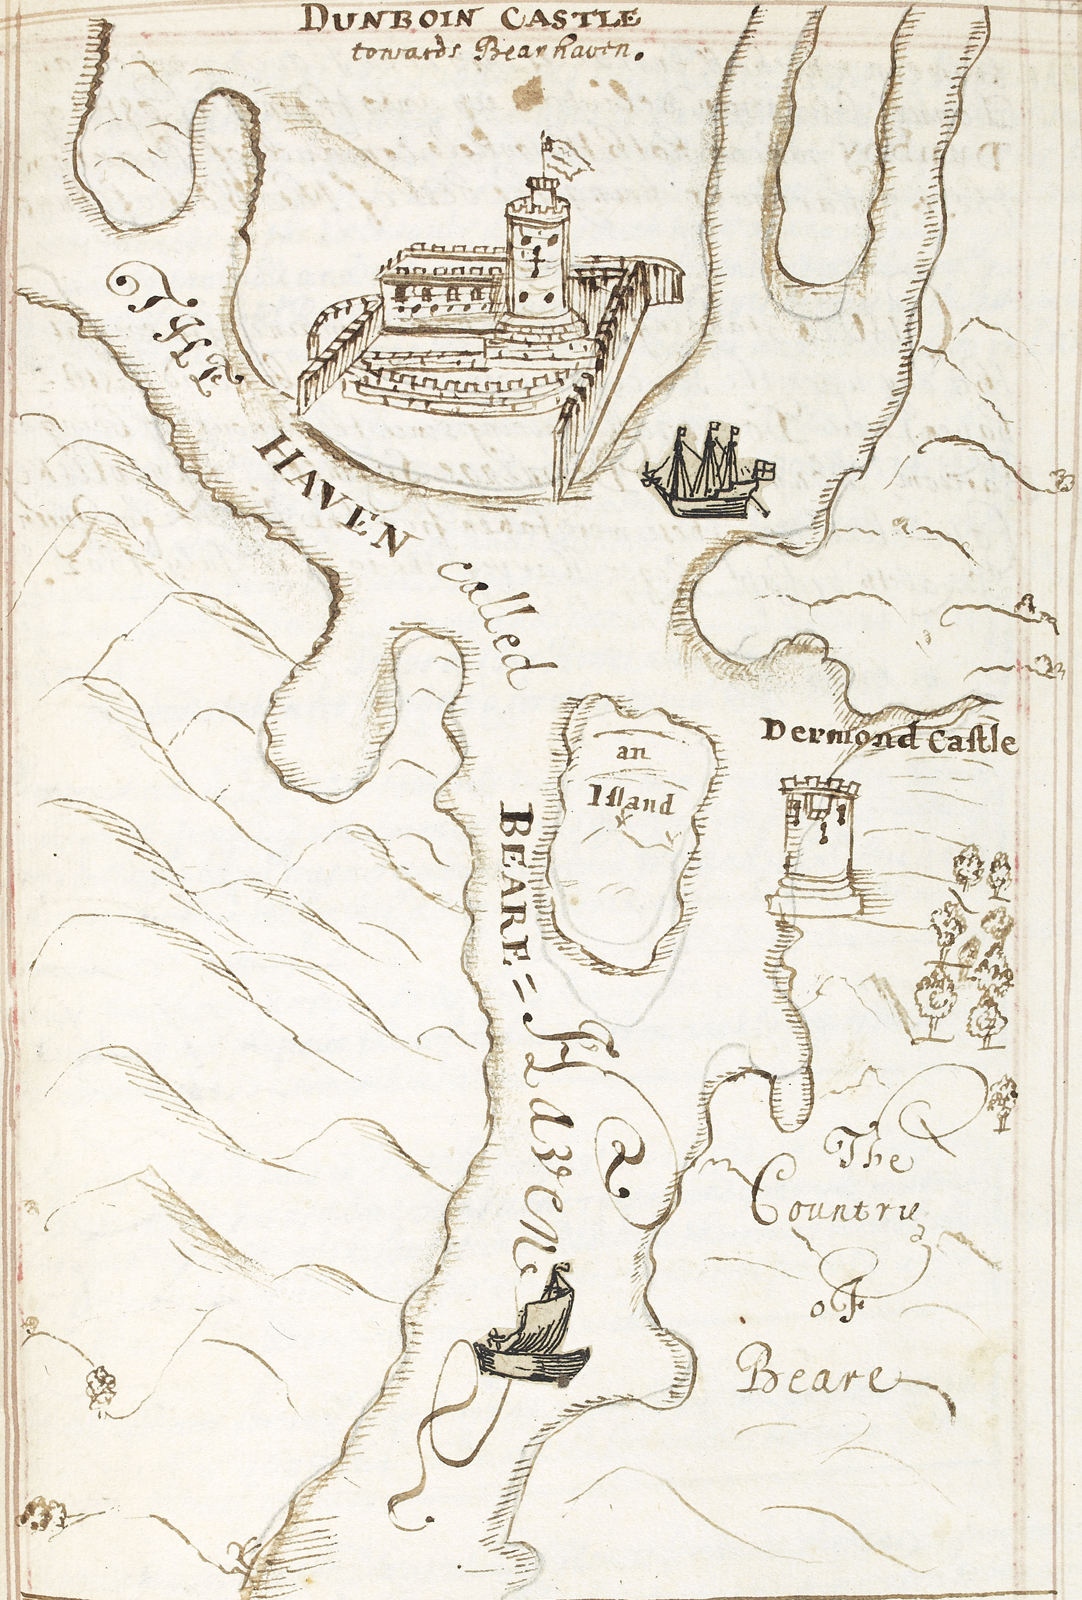 DUNBOIN CASTLE
towards Bearhaven.
THE
HAVEN
called
BEARE=
Haven
an
Island
Dermond Castle
The
Country
of
Beare